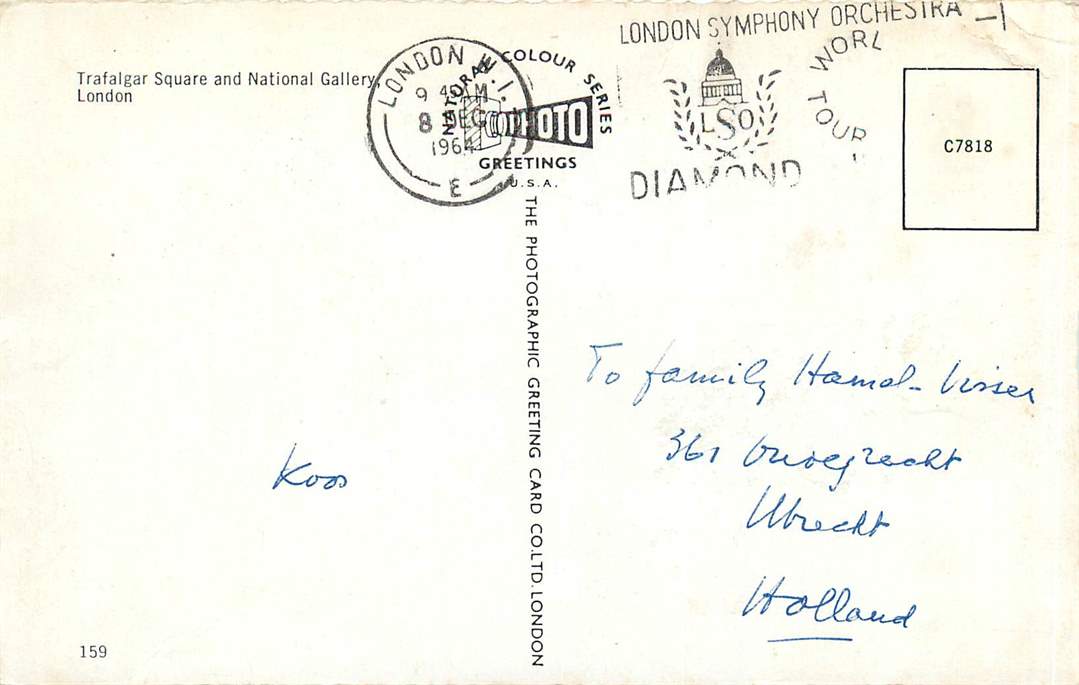 Trafalgar Square and National Gallery,
London
LONDON W.1.
9 45 AM
8 DEC
1964
E
NATURAL COLOUR SERIES
PHOTO
GREETINGS
U.S.A.
LONDON SYMPHONY ORCHESTRA
LSO
WORL
TOUR
DIAMOND
C7818
THE PHOTOGRAPHIC GREETING CARD CO.LTD. LONDON
Koos
To family Hamal-Visser
361
Utrecht
Holland
159